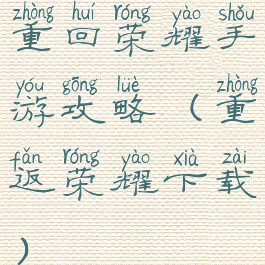 zhòng huí róng yào shǒu
重回荣耀手
yóu gōng lüè zhòng
游攻略(重
fǎn róng yào xià zài
返荣耀下载
)